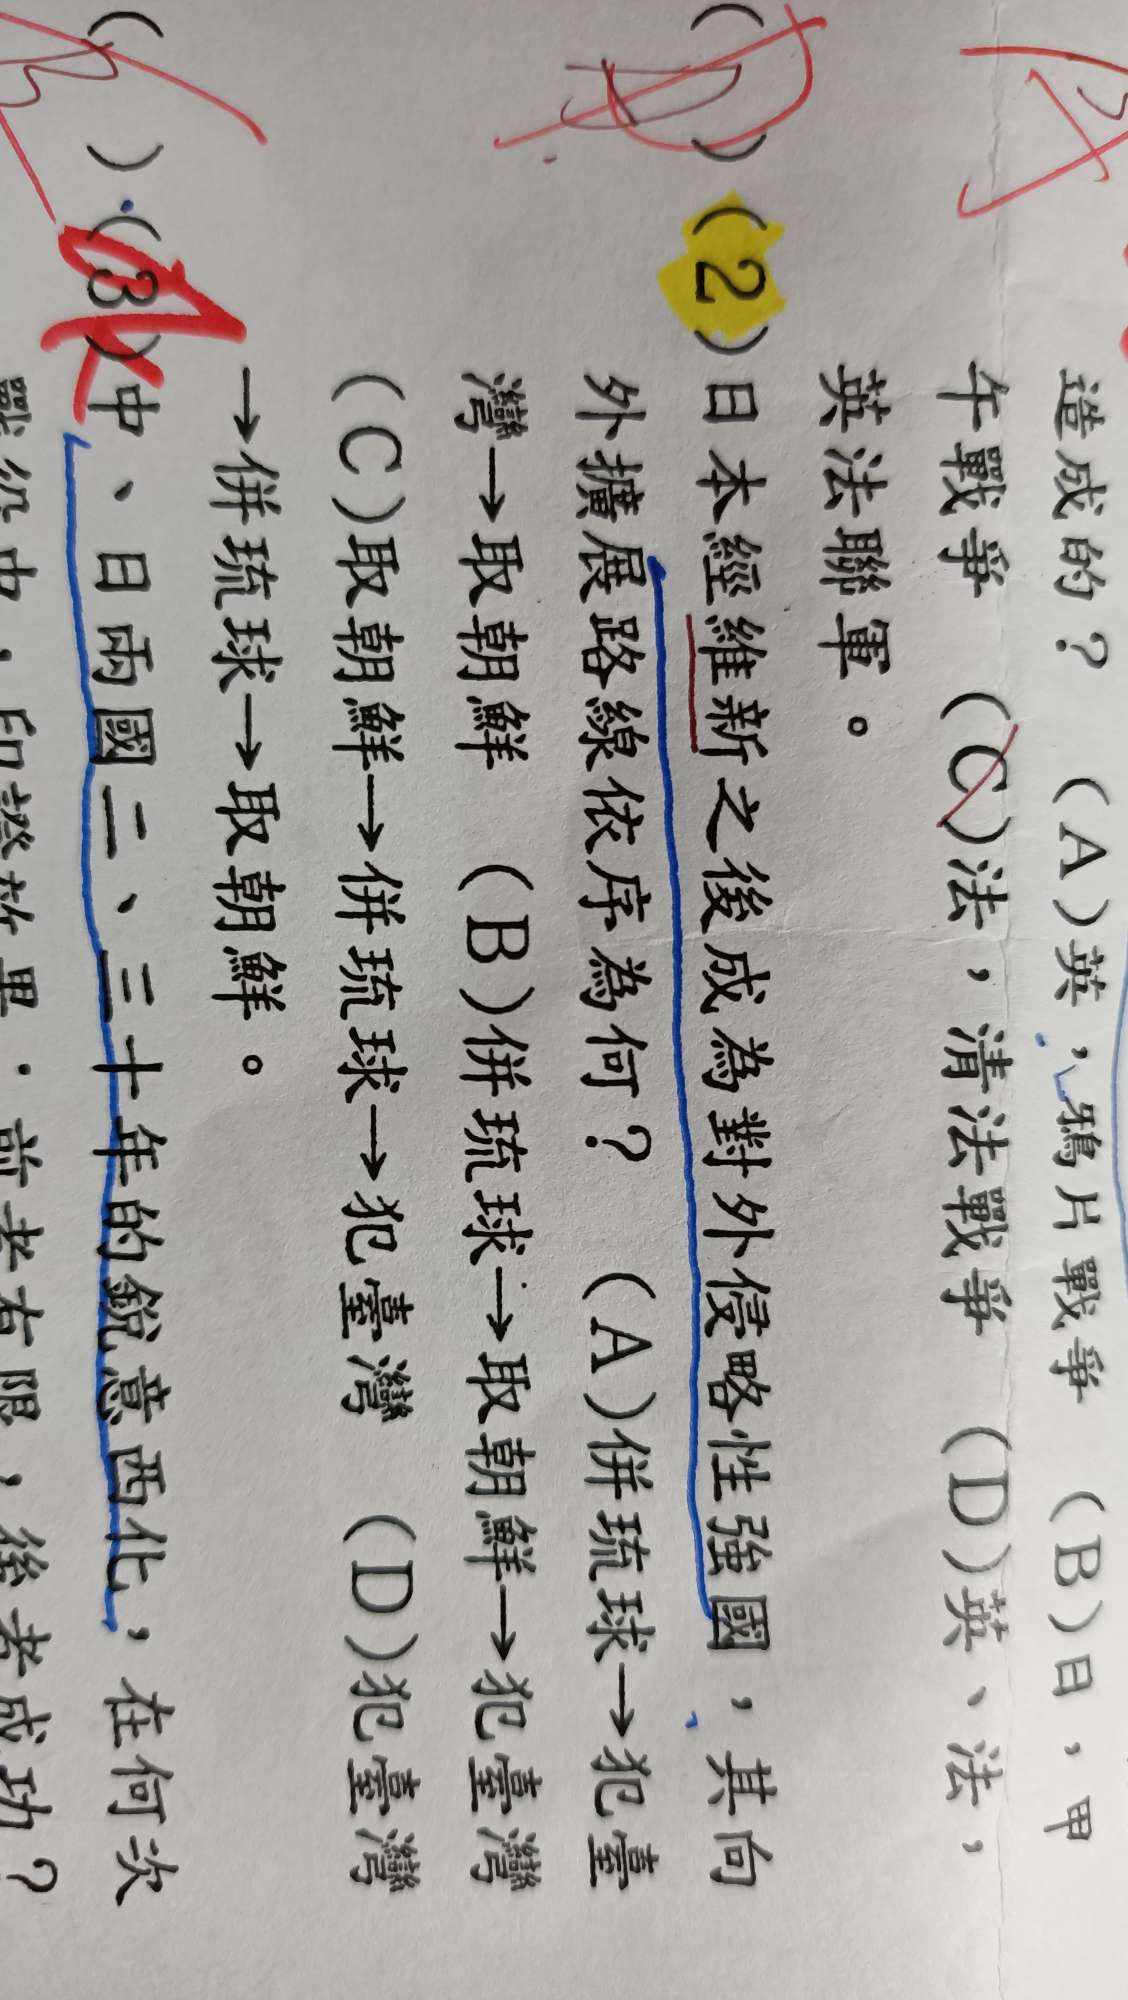 造成的？　(A)英，鴉片戰爭　(B)日，甲
午戰爭　(C)法，清法戰爭　(D)英、法，
英法聯軍。
(D)(2)日本經維新之後成為對外侵略性強國，其向
外擴展路線依序為何？　(A)併琉球→犯臺
灣→取朝鮮　(B)併琉球→取朝鮮→犯臺灣
(C)取朝鮮→併琉球→犯臺灣　(D)犯臺灣
→併琉球→取朝鮮。
(　)(3)中、日兩國二、三十年的銳意西化，在何次
戰役中，印證效果：前者有限，後者成功？